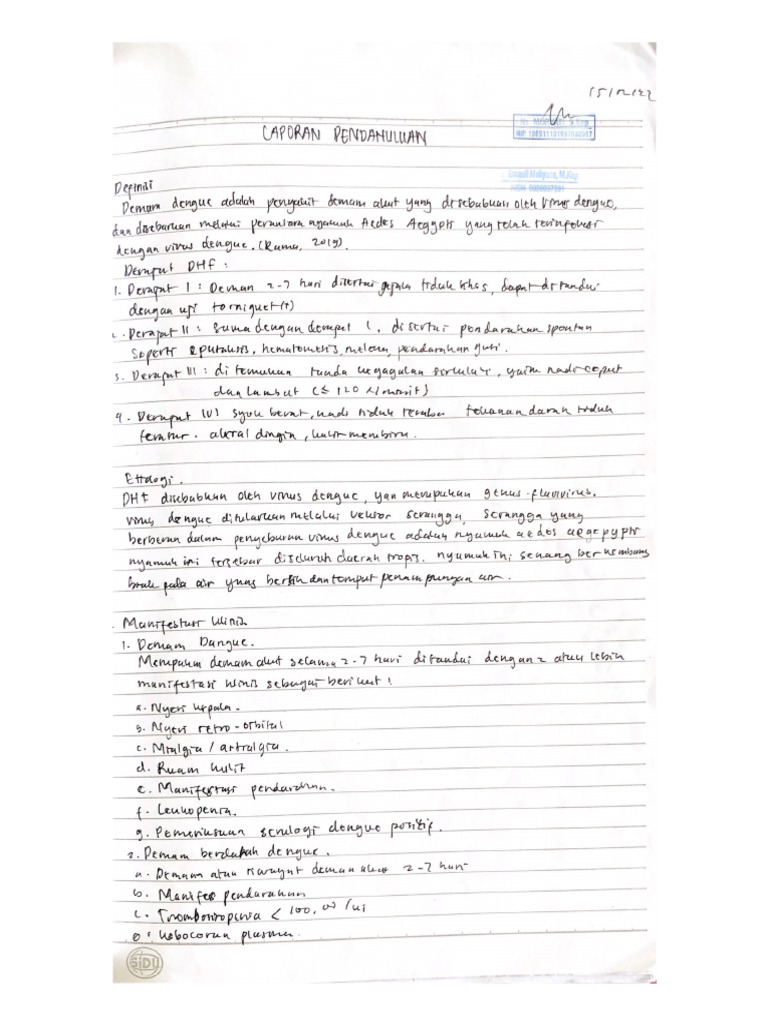 15/12/22
LAPORAN PENDAHULUAN
Definisi
Demam dengue adalah penyakit demam akut yang disebabkan oleh virus dengue,
dan disebarkan melalui perantara nyamuk Aedes Aegypti yang telah terinfeksi
dengan virus dengue. (Rama, 2019).
Derajat DHF :
1. Derajat I : Demam 2-7 hari disertai gejala tidak khas, dapat ditandai
dengan uji torniquet (+)
2. Derajat II : Sama dengan derajat 1, disertai pendarahan spontan
Seperti epistaksis, hematemesis, melena, pendarahan gusi.
3. Derajat III : ditemukan tanda kegagalan sirkulasi, yaitu nadi cepat
dan lambat (≤ 120 x/menit)
4. Derajat IV) syok berat, nadi tidak teraba tekanan darah tidak
teratur. akral dingin, kulit membiru.
Etiologi.
DHF disebabkan oleh virus dengue, yan merupakan genus flavivirus.
virus dengue ditularkan melalui vektor serangga, serangga yang
berperan dalam penyebaran virus dengue adalah nyamuk aedes aegepypti
nyamuk ini tersebar diseluruh daerah tropis. nyamuk ini senang berkembang
biak pada air yang bersih dan tempat penampungan air.
Manifestasi klinis
1. Demam Dangue.
Merupakan demam akut selama 2-7 hari ditandai dengan 2 atau lebih
manifestasi klinis sebagai berikut :
a. Nyeri kepala.
b. Nyeri retro-orbital
c. Mialgia / artralgia.
d. Ruam kulit
e. Manifestasi pendarahan.
f. Leukopenia.
g. Pemeriksaan serologi dengue positif.
2. Demam berdarah dengue.
a. Demam atau riwayat demam akut 2-7 hari
b. Manifes pendarahan
c. Trombositopenia < 100.00 /ul
kebocoran plasma.
SIDU